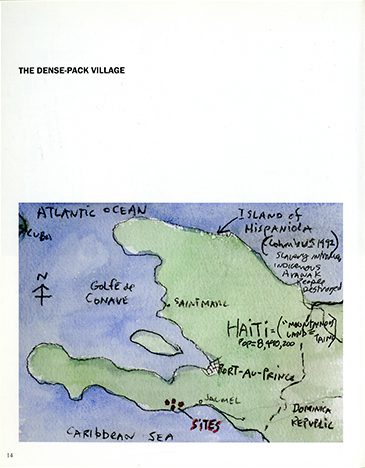 THE DENSE-PACK VILLAGE
ATLANTIC OCEAN
CUBA
ISLAND of
HISPANIOLA
(Columbus 1492)
Slavery initiated
indigenous
ARAWAK
People
destroyed
N
GOLFE de
GONAVE
SAINT MARC
HAITI = ("MOUNTAINOUS
LAND"
POP=8,440,200
PORT-AU-PRINCE
JACMEL
SITES
DOMINICA
REPUBLIC
CARIBBEAN SEA
14